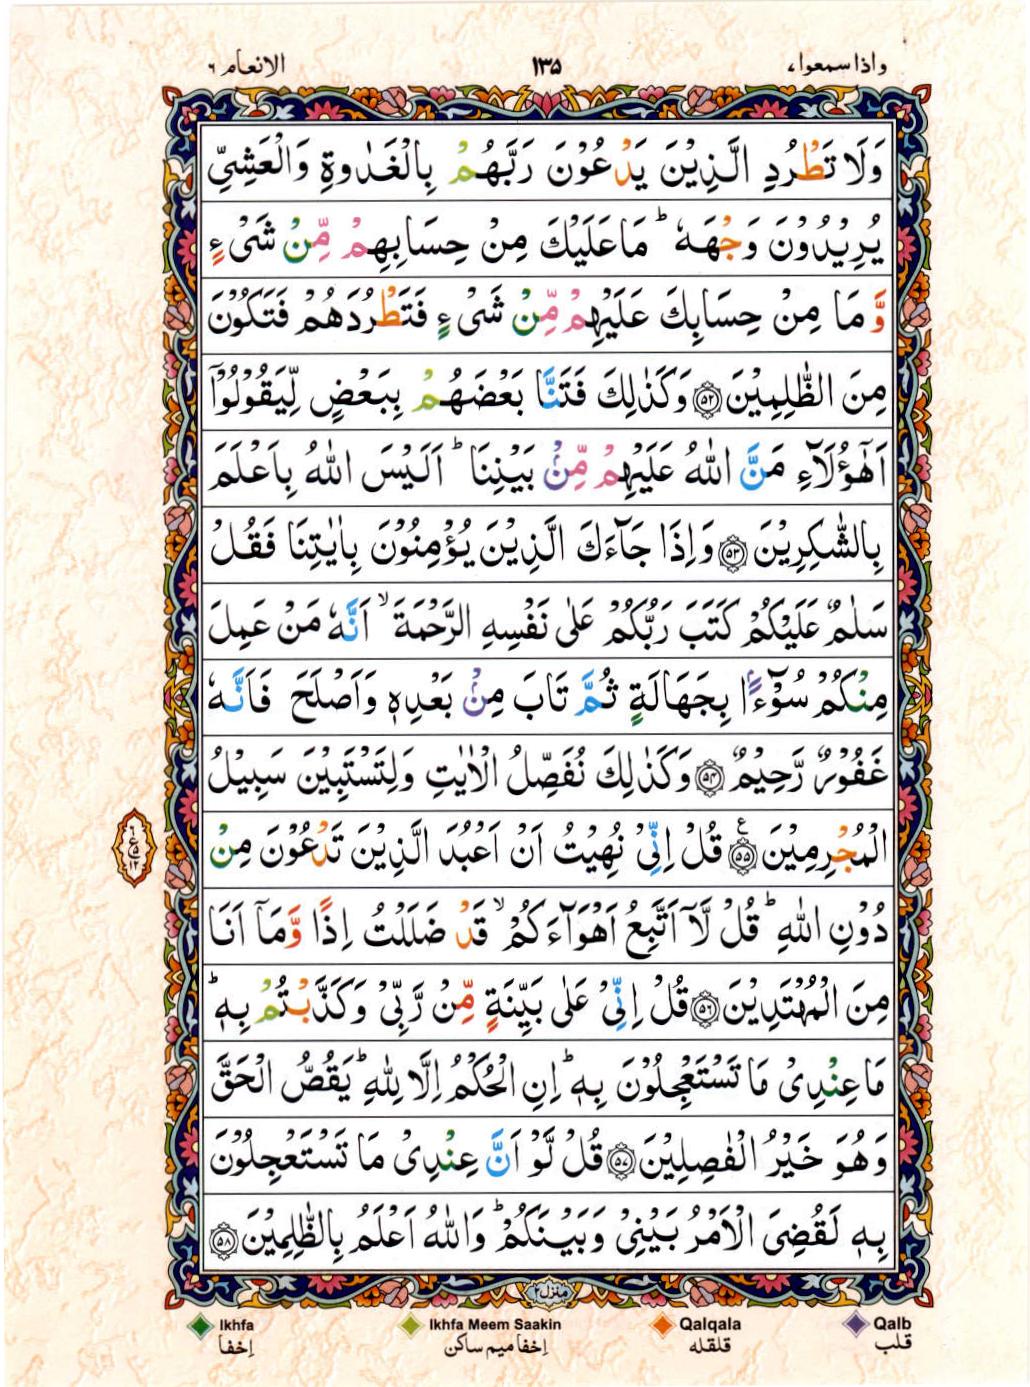 واذا سمعوا،
۱۳۵
الانعام ۶
وَلَا تَطْرُدِ الَّذِیْنَ یَدْعُوْنَ رَبَّهُمْ بِالْغَدٰوةِ وَالْعَشِیِّ
یُرِیْدُوْنَ وَجْهَهٗ ؕ مَا عَلَیْكَ مِنْ حِسَابِهِمْ مِّنْ شَیْءٍ
وَّ مَا مِنْ حِسَابِكَ عَلَیْهِمْ مِّنْ شَیْءٍ فَتَطْرُدَهُمْ فَتَكُوْنَ
مِنَ الظّٰلِمِیْنَ ۝۵۲ وَكَذٰلِكَ فَتَنَّا بَعْضَهُمْ بِبَعْضٍ لِّیَقُوْلُوْۤا
اَهٰۤؤُلَآءِ مَنَّ اللّٰهُ عَلَیْهِمْ مِّنْۢ بَیْنِنَا ؕ اَلَیْسَ اللّٰهُ بِاَعْلَمَ
بِالشّٰكِرِیْنَ ۝۵۳ وَاِذَا جَآءَكَ الَّذِیْنَ یُؤْمِنُوْنَ بِاٰیٰتِنَا فَقُلْ
سَلٰمٌ عَلَیْكُمْ كَتَبَ رَبُّكُمْ عَلٰی نَفْسِهِ الرَّحْمَةَ ۙ اَنَّهٗ مَنْ عَمِلَ
مِنْكُمْ سُوْٓءًۢا بِجَهَالَةٍ ثُمَّ تَابَ مِنْۢ بَعْدِهٖ وَاَصْلَحَ فَاَنَّهٗ
غَفُوْرٌ رَّحِیْمٌ ۝۵۴ وَكَذٰلِكَ نُفَصِّلُ الْاٰیٰتِ وَلِتَسْتَبِیْنَ سَبِیْلُ
الْمُجْرِمِیْنَ ۝۵۵ قُلْ اِنِّیْ نُهِیْتُ اَنْ اَعْبُدَ الَّذِیْنَ تَدْعُوْنَ مِنْ
دُوْنِ اللّٰهِ ؕ قُلْ لَّاۤ اَتَّبِعُ اَهْوَآءَكُمْ ۙ قَدْ ضَلَلْتُ اِذًا وَّمَاۤ اَنَا
مِنَ الْمُهْتَدِیْنَ ۝۵۶ قُلْ اِنِّیْ عَلٰی بَیِّنَةٍ مِّنْ رَّبِّیْ وَكَذَّبْتُمْ بِهٖ ؕ
مَا عِنْدِیْ مَا تَسْتَعْجِلُوْنَ بِهٖ ؕ اِنِ الْحُكْمُ اِلَّا لِلّٰهِ ؕ یَقُصُّ الْحَقَّ
وَهُوَ خَیْرُ الْفٰصِلِیْنَ ۝۵۷ قُلْ لَّوْ اَنَّ عِنْدِیْ مَا تَسْتَعْجِلُوْنَ
بِهٖ لَقُضِیَ الْاَمْرُ بَیْنِیْ وَبَیْنَكُمْ ؕ وَاللّٰهُ اَعْلَمُ بِالظّٰلِمِیْنَ ۝۵۸
منزل۲
Ikhfa Ikhfa Meem Saakin Qalqala Qalb
قلب قلقله اِخفا میم ساکن اِخفا